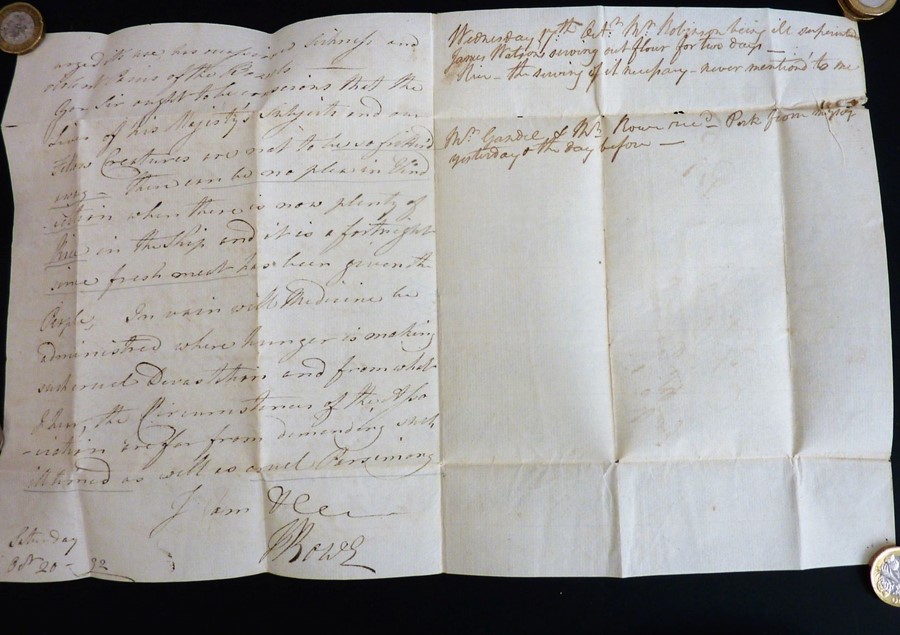 urged it are has occasioned Sickness and
discontents of the People
Good Sir ought to be conscious that the
Lives of his Majesty's Subjects and our
Fellow Creatures are not to be so frittered
away — There can be no plea in Vind
-ication when there is now plenty of
Rice in the Ship and it is a fortnight
since fresh meat has been given the
People, In vain will Medicine be
administred where hunger is making
such cruel Devastation and from what
I hear, the Circumstances of the Asso
-ciation are far from demanding such
illtimed as well as cruel Parsimony
I am &c
Rowe
Saturday
Octr 20 - 92
Wednesday 17th Octr. Mr. Robinson being ill
James Watson serving out flour for two days —
Rice — the serving of it necessary — never mention'd to me
Mr. Gandell & Mr. Rowe recd. Pork from
yesterday & the day before —